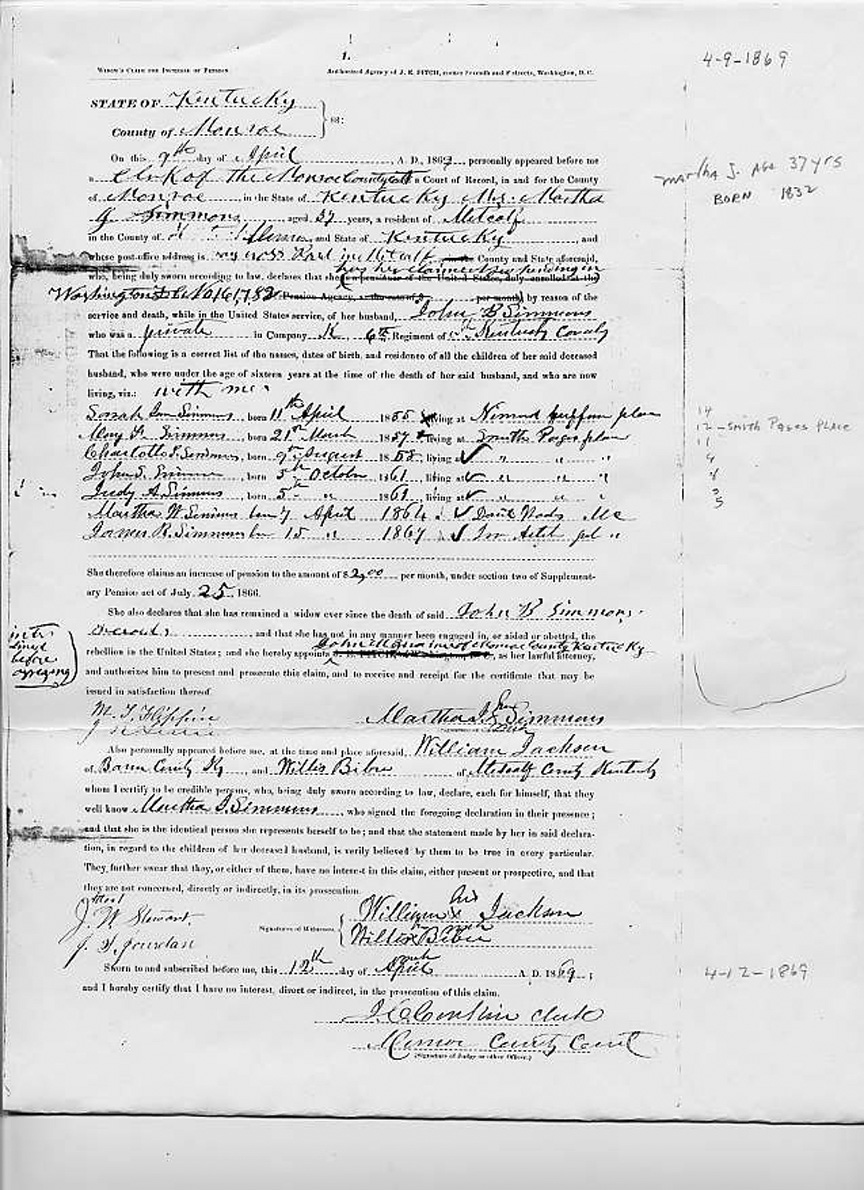 1.
4-9-1869
WIDOW'S CLAIM FOR INCREASE OF PENSION
Authorized Agency of J. E. FITCH, corner Seventh and F streets, Washington, D. C.
STATE OF Kentucky
County of Monroe } ss:
On this 9th day of April, A. D., 1869, personally appeared before me
a Clerk of the Monroe County Court a Court of Record, in and for the County
of Monroe, in the State of Kentucky Mrs. Martha
Martha J. Age 37 yrs
BORN 1832
J. Simmons aged 37 years, a resident of Metcalf
in the County of and State of Kentucky, and
whose post-office address is cross Road in Metcalf County and State aforesaid,
who, being duly sworn according to law, declares that she has her claim now pending in
Washington by reason of the
service and death, while in the United States service, of her husband, John B Simmons
who was a private in Company K, 6th Regiment of Kentucky
That the following is a correct list of the names, dates of birth, and residence of all the children of her said deceased
husband, who were under the age of sixteen years at the time of the death of her said husband, and who are now
living, viz.: with me
Sarah Simmons, born 11th April 1855 living at place
14
Mary Simmons, born 21st March 1857 living at Smith Pages place
12 - SMITH PAGES PLACE
Charlotte Simmons, born 9th August 1858, living at " " "
11
John S. Simmons, born 5th October 1861, living at " " "
Judy A Simmons, born 5th " 1861, living at " " "
Martha W Simmons born 7 April 1864
James R. Simmons born 15 " 1867
5
She therefore claims an increase of pension to the amount of $2,00 per month, under section two of Supplement-
ary Pension act of July 25, 1866.
She also declares that she has remained a widow ever since the death of said John B Simmons
and that she has not in any manner been engaged in, or aided or abetted, the
inter
lined
before
signing
rebellion in the United States; and she hereby appoints John of Monroe County Kentucky, as her lawful attorney,
and authorizes him to present and prosecute this claim, and to receive and receipt for the certificate that may be
issued in satisfaction thereof.
M. T. Flippin
Martha J. her x mark Simmons
Also personally appeared before me, at the time and place aforesaid, William Jackson
of Barren County Ky, and Willis Bibee of Metcalf County Kentucky
whom I certify to be credible persons, who, being duly sworn according to law, declare, each for himself, that they
well know Martha J. Simmons, who signed the foregoing declaration in their presence;
and that she is the identical person she represents herself to be; and that the statement made by her in said declara-
tion, in regard to the children of her deceased husband, is verily believed by them to be true in every particular.
They, further swear that they, or either of them, have no interest in this claim, either present or prospective, and that
they are not concerned, directly or indirectly, in its prosecution.
attest
J. W. Stewart
William his x mark Jackson
Signatures of Witnesses.
J. T. Jourdan
Willis x Bibee
mark
Sworn to and subscribed before me, this 12th day of April A. D. 1869;
4-12-1869
and I hereby certify that I have no interest, direct or indirect, in the prosecution of this claim.
J C Conkin clerk
Monroe County Court
(Signature of Judge or other Officer.)